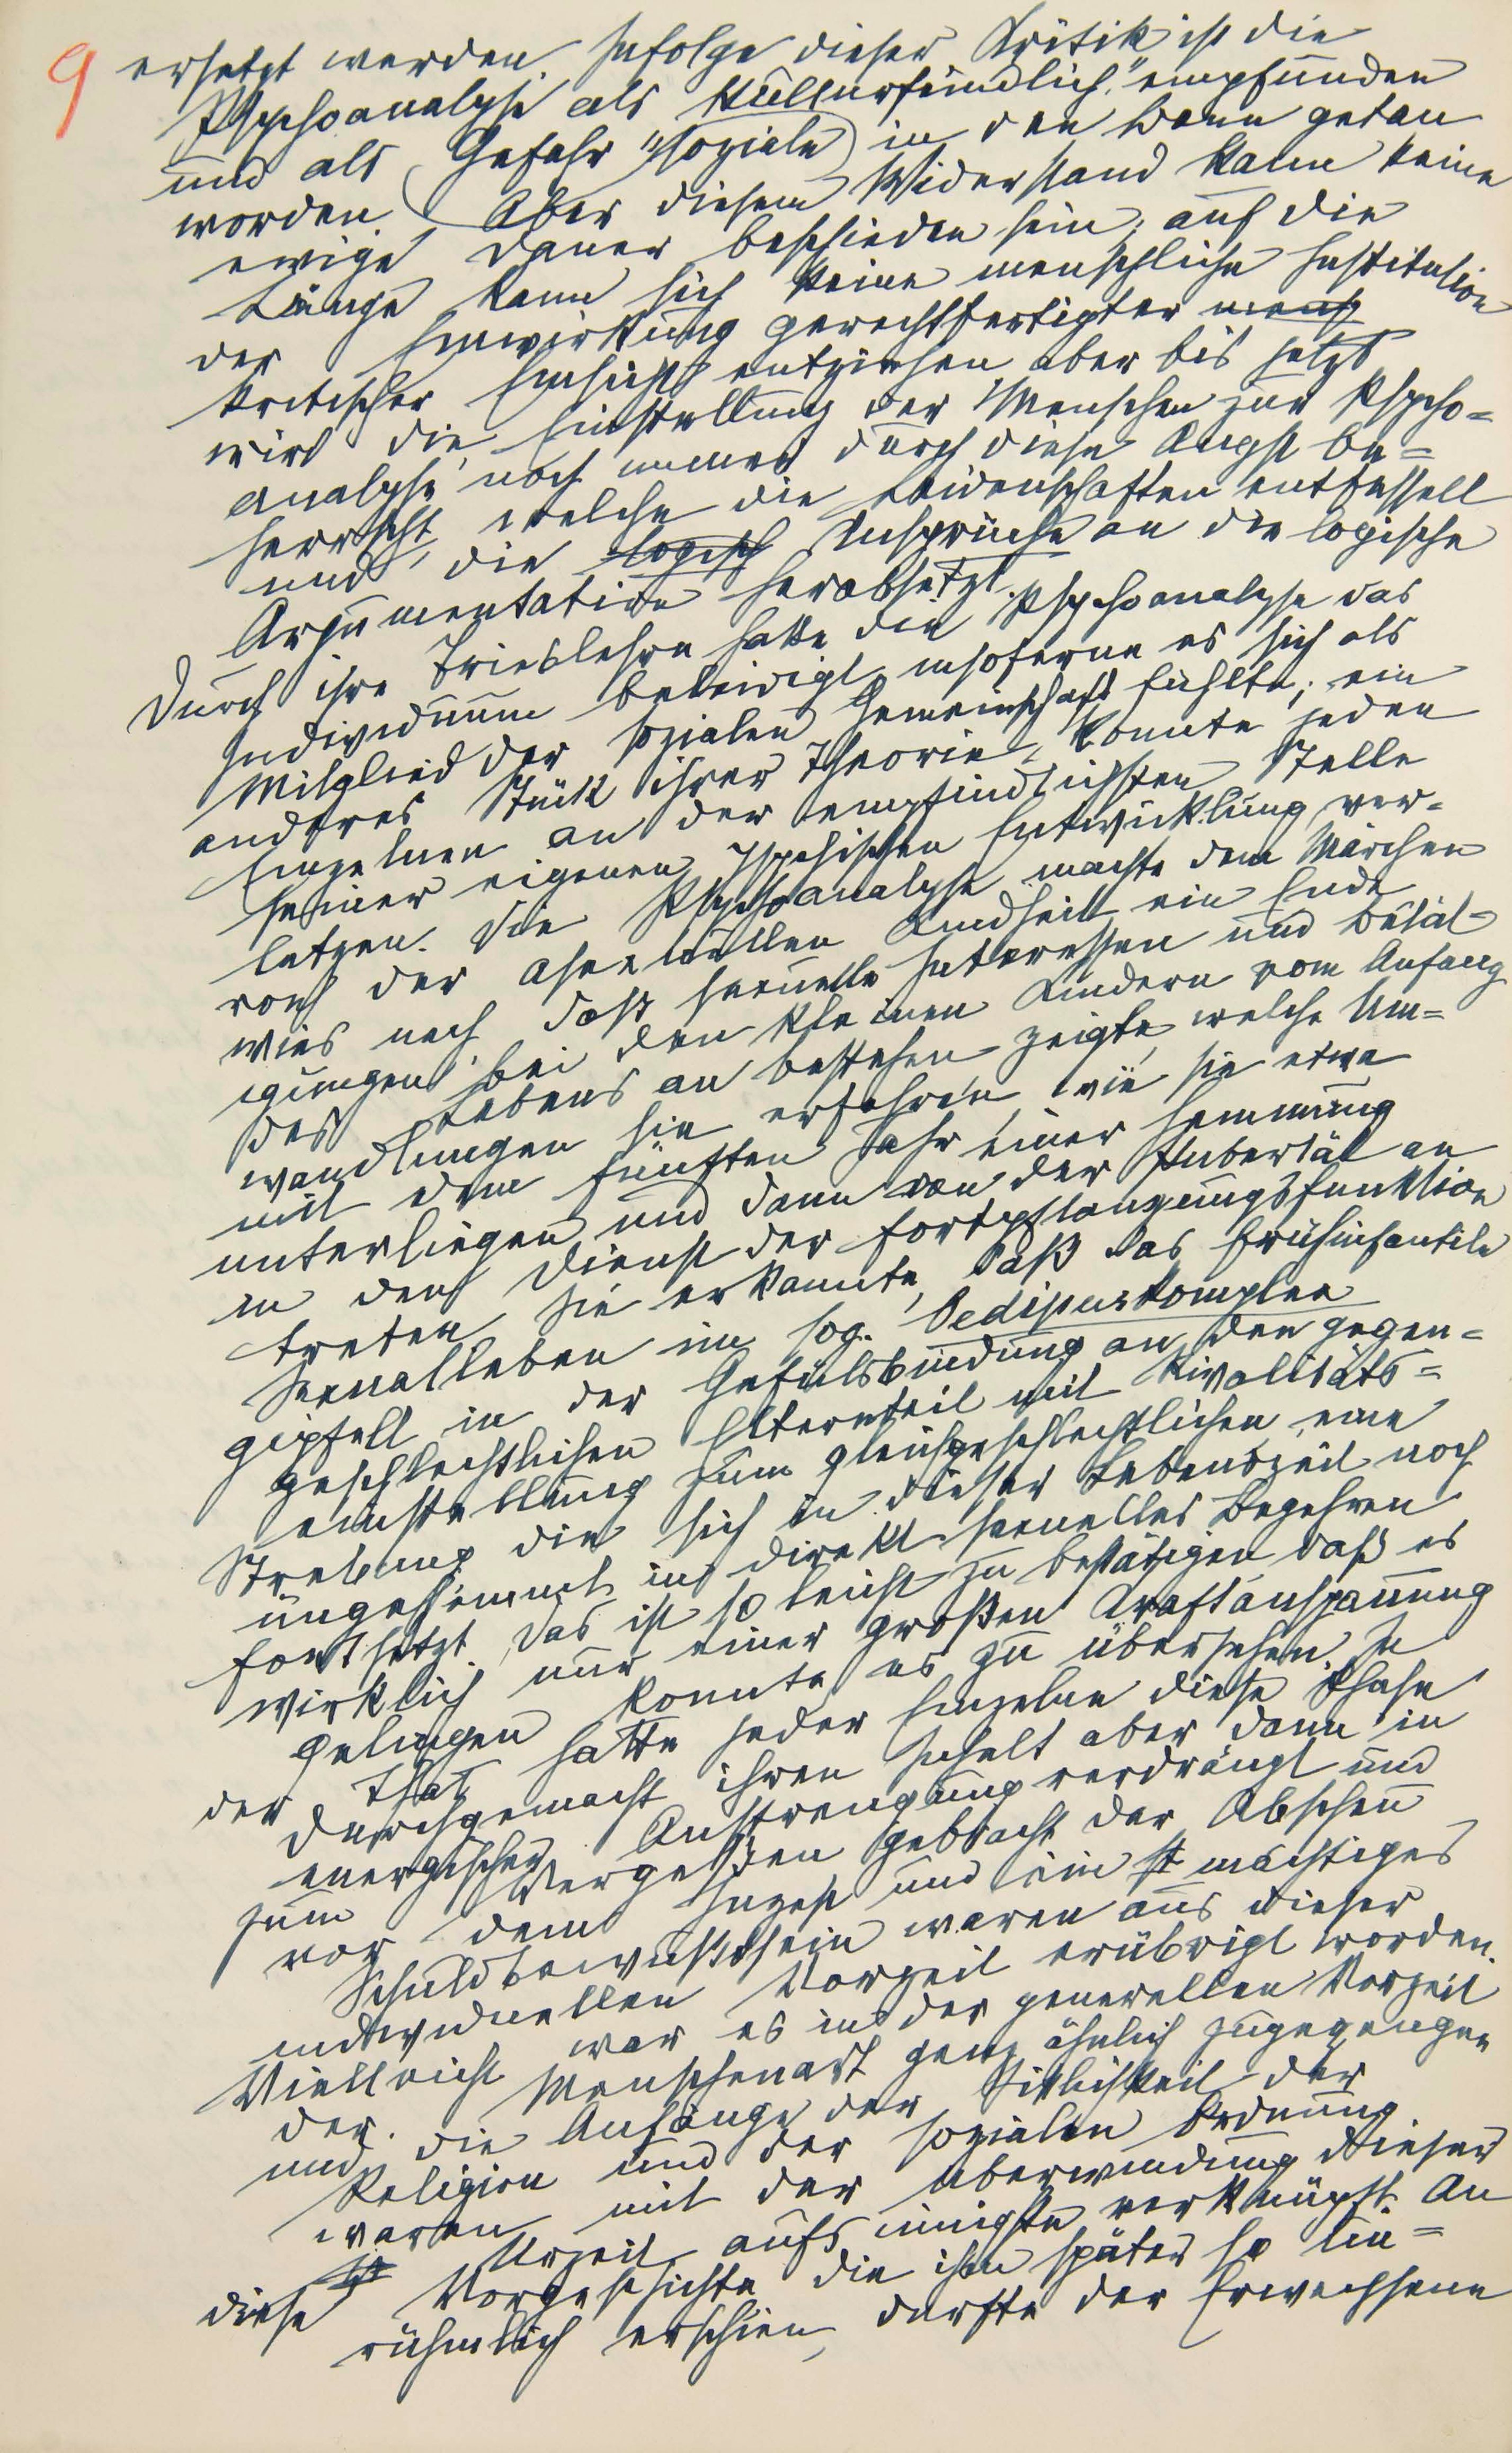 9
ersetzt werden. Infolge dieser Kritik ist die
Psychoanalyse als „kulturfeindlich“ empfunden
und als Gefahr „soziale“ in den Bann getan
worden. Aber diesem Widerstand kann keine
ewige Dauer beschieden sein; auf die
Länge kann sich keine menschliche Institution
der Einwirkung gerechtfertigter mensch
kritischer Einsicht entziehen aber bis jetzt
wird die Einstellung der Menschen zur Psycho=
analyse noch immer durch diese Angst be=
herrscht, welche die Leidenschaften entfesselt
und die logisch Ansprüche an die logische
Argumentation herabsetzt.
Durch ihre Trieblehre hatte die Psychoanalyse das
Individuum beleidigt, insoferne es sich als
Mitglied der sozialen Gemeinschaft fühlte; ein
anderes Stück ihrer Theorie konnte jeden
Einzelnen an der empfindlichsten Stelle
seiner eigenen psychischen Entwicklung ver=
letzen. Die Psychoanalyse machte dem Märchen
von der asexuellen Kindheit ein Ende,
wies nach, daß sexuelle Interessen und Betät=
igungen bei den kleinen Kindern vom Anfang
des Lebens an bestehen, zeigte, welche Um=
wandlungen sie erfahren, wie sie etwa
mit dem fünften Jahr einer Hemmung
unterliegen und dann von der Pubertät an
in den Dienst der Fortpflanzungsfunktion
treten. Sie erkannte, daß das frühinfantile
Sexualleben im sog. Oedipuskomplex
gipfelt, in der Gefülsbindung an den gegen=
geschlechtlichen Elternteil mit Rivalitäts=
einstellung zum gleichgeschlechtlichen, eine
Strebung, die sich in dieser Lebenszeit noch
ungehemmt in direkt sexuelles Begehren
fortsetzt. Das ist so leicht zu bestätigen, daß es
wirklich nur einer großen Kraftanspannung
gelingen konnte, es zu übersehen. In
der That hatte jeder Einzelne diese Phase
durchgemacht, ihren Inhalt aber dann in
energischer Anstrengung verdrängt und
zum Vergessen gebracht. Der Abscheu
vor dem Inzest und ein mächtiges
Schuldbewußtsein waren aus dieser
individuellen Vorzeit erübrigt worden.
Vielleicht war es in der generellen Vorzeit
der Menschenart ganz ähnlich zugegangen
und die Anfänge der Sittlichkeit, der
Religion und der sozialen Ordnung
waren mit der Überwindung dieser
Urzeit aufs innigste verknüpft. An
diese Vorgeschichte, die ihm später so un=
rühmlich erschien, durfte der Erwachsene